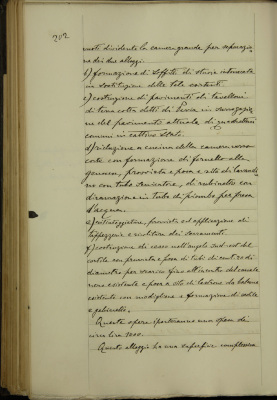 202
muro dividente la camera grande per separazione
dei due alloggi.
b) formazione di soffitto di stuoia intonacata
in sostituzione delle tele esistenti.
c) costruzione di pavimenti di tavelloni
di terra cotta detti di Pavia in surrogazione
del pavimento attuale di quadrettoni
comuni in cattivo stato.
d) riduzione a cucina della camera verso
corte con formazione di fornello alla
genovese, provvista e posa e sito di lavandino
con tubo scaricatore, di rubinetto con
diramazione in tubo di piombo per presa
d'acqua.
e) rintonacatura, provvista ed applicazione di
tappezzerie e coloritura dei serramenti.
f) costruzione di cesso nell'angolo sud-est del
cortile con provvista e posa di tubi di cent. 20 di
diametro per scarico fino all'incontro del canale
nero esistente e posa a sito di lastre da balcone
esistente con modiglioni e formazione di sedile
e gabinetto.
Queste opere importeranno una spesa di
circa lire 1200.
Questo alloggio ha una superficie complessiva